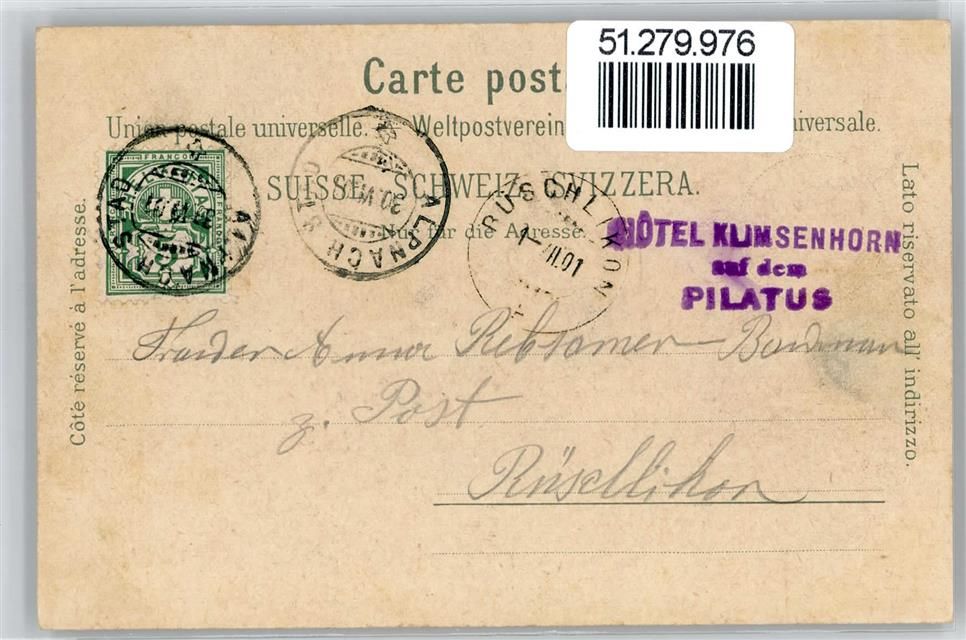 51.279.976
Carte post
Union postale universelle. Weltpostverein niversale.
SUISSE. SCHWEIZ. SVIZZERA.
Nur für die Adresse.
Côté réservé à l'adresse.
Lato riservato all' indirizzo.
FRANCO
ALPNACH STAD
ALPNACH STAD
30 VI
RÜSCHLIKON
1 VII.01
HÔTEL KLIMSENHORN
auf dem
PILATUS
Anna Rebsamen-
z. Post
Rüschlikon